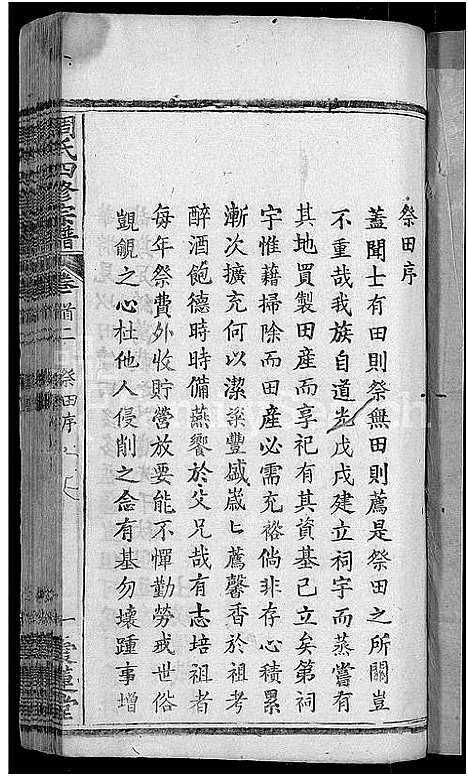 祭田序
蓋聞士有田則祭無田則薦是祭田之所關豈
不重哉我族自道光戊戌建立祠宇而蒸嘗有
其地買製田産而享祀有其資基已立矣第祠
宇惟藉掃除而田産必需充裕倘非存心積累
漸次擴充何以潔粢豐盛歲匕薦馨香於祖考
醉酒飽德時時備燕饗於父兄哉有志培祖者
每年祭費外收貯營放要能不憚勤勞戒世俗
覬覦之心杜他人侵削之念有基勿壞踵事增
周氏四修宗譜 卷首二 祭田序 一